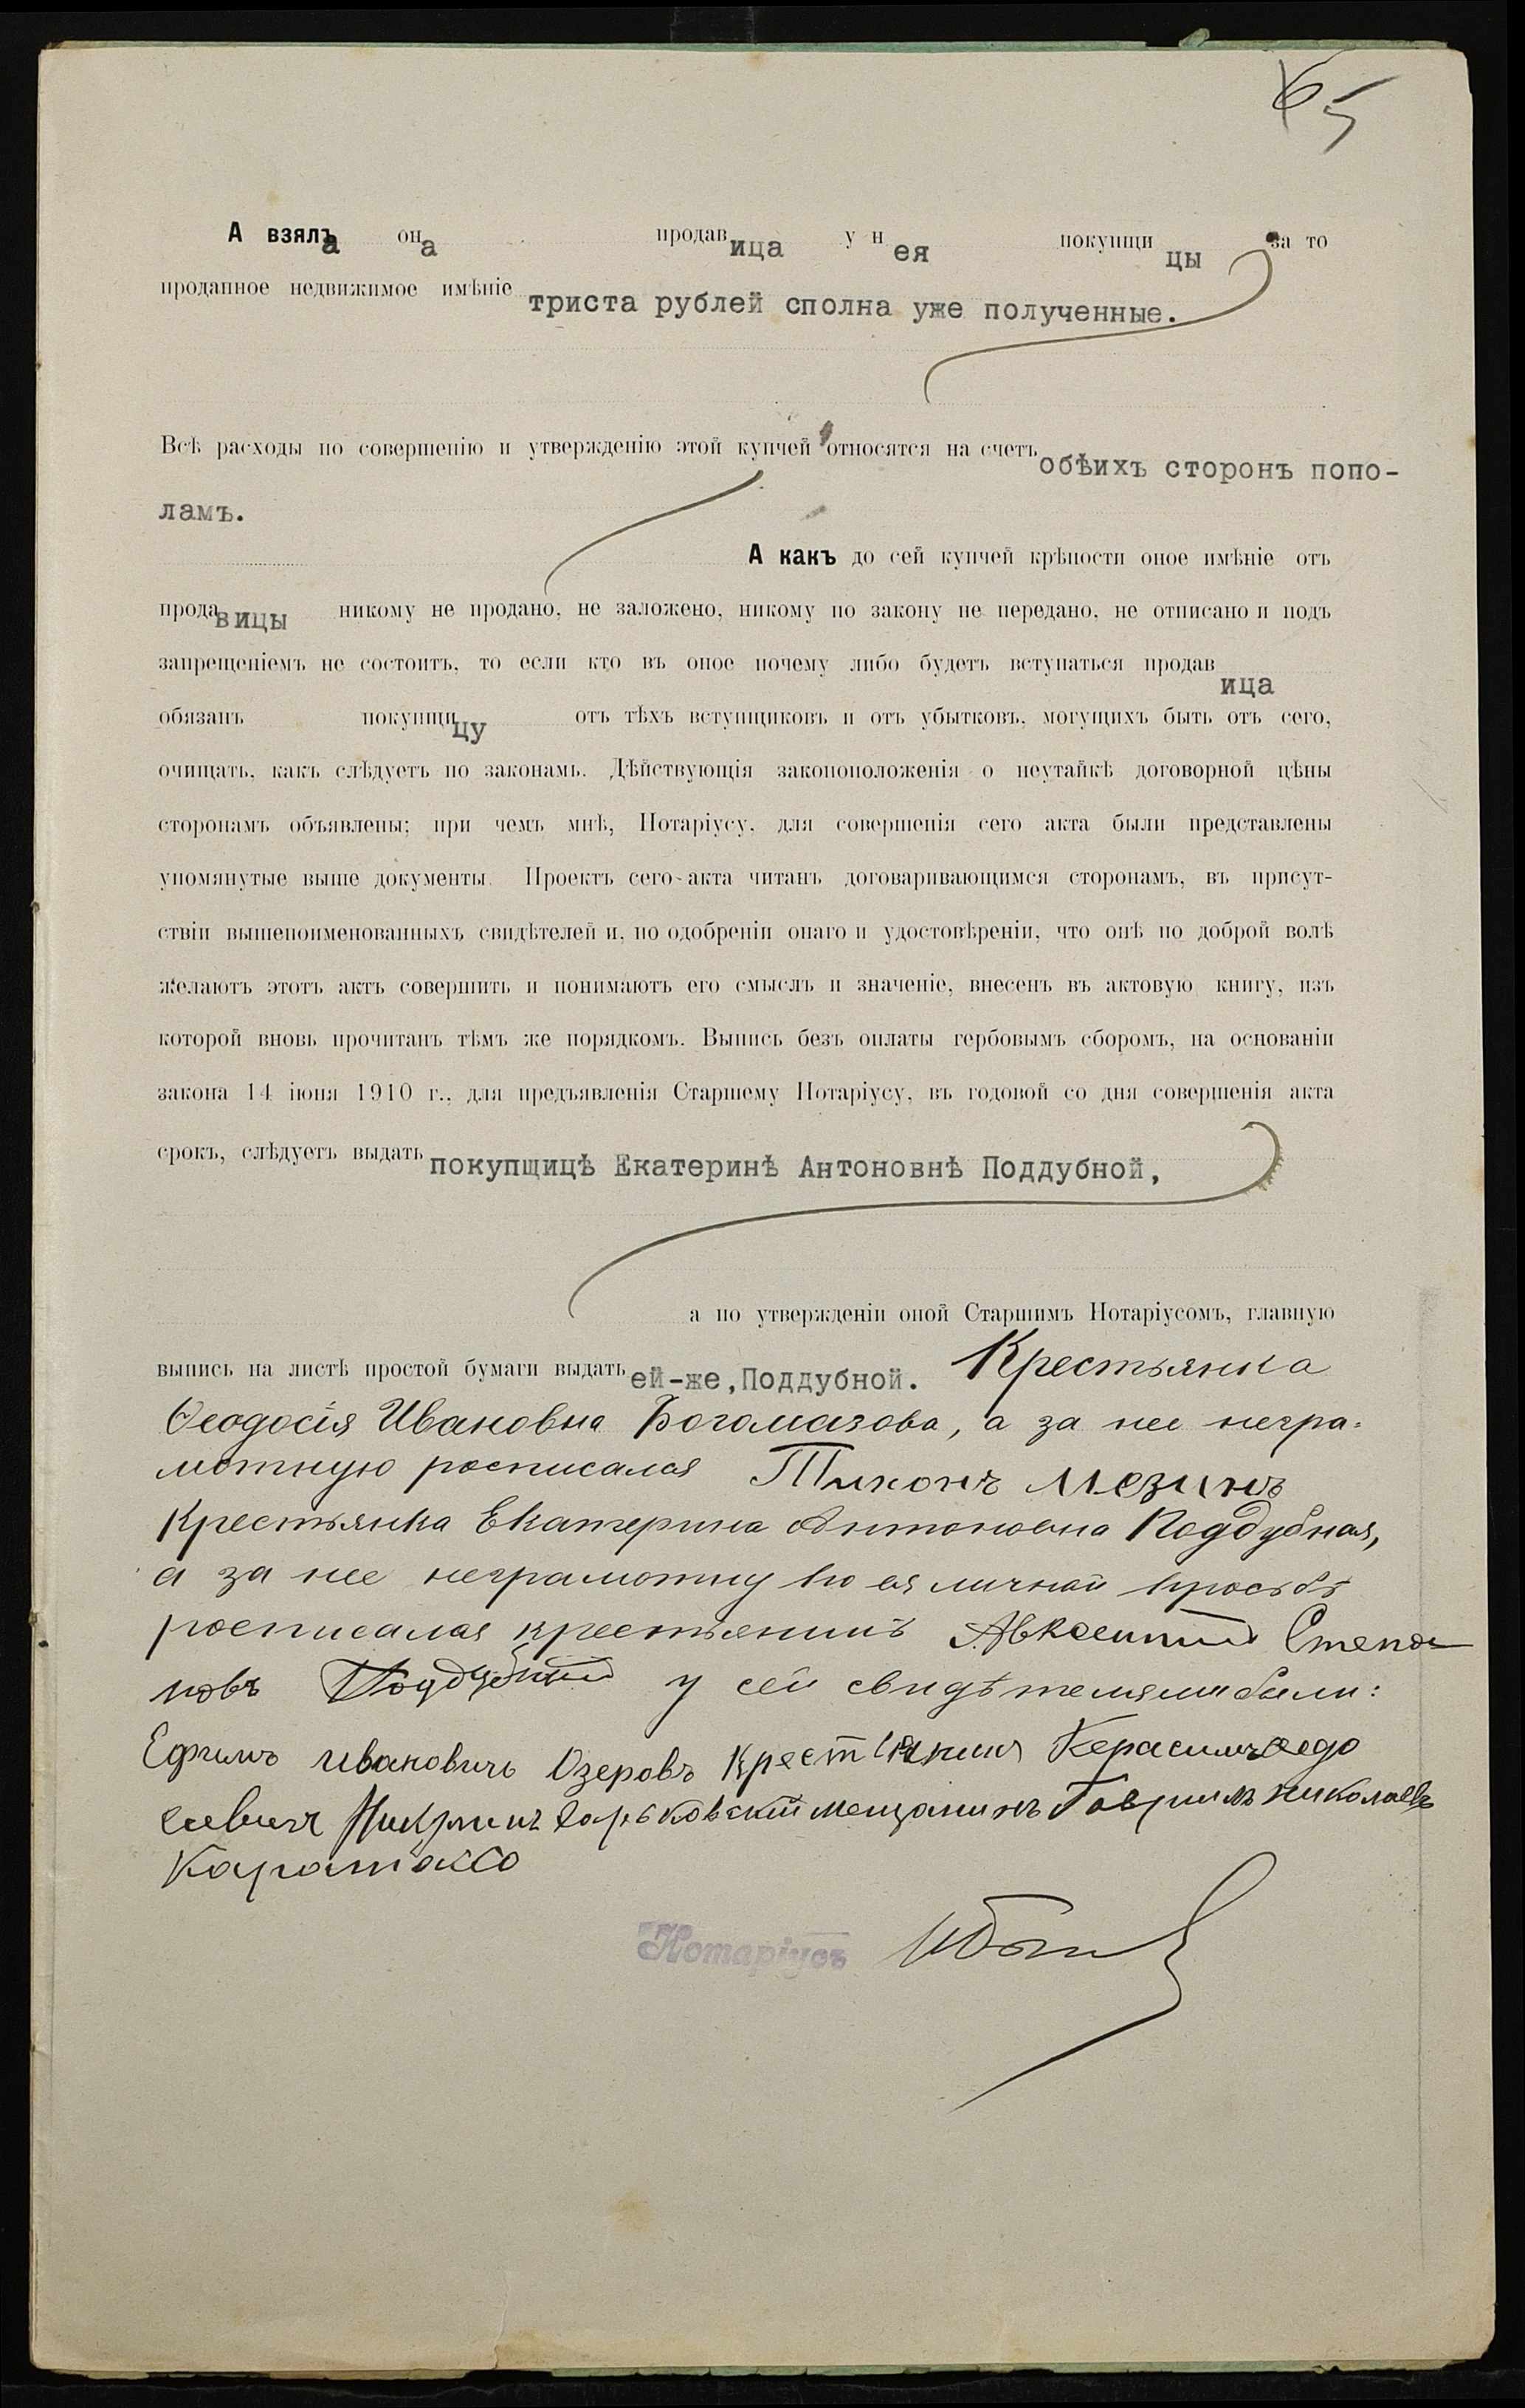 65
А взяла она продавица у нея покупщицы за то
проданное недвижимое имѣніе триста рублей сполна уже полученные.
Всѣ расходы по совершенію и утвержденію этой купчей относятся на счетъ обѣихъ сторонъ попо-
ламъ.
А какъ до сей купчей крѣпости оное имѣніе отъ
продавицы никому не продано, не заложено, никому по закону не передано, не отписано и подъ
запрещеніемъ не состоитъ, то если кто въ оное почему либо будетъ вступаться продавица
обязанъ покупщицу отъ тѣхъ вступщиковъ и отъ убытковъ, могущихъ быть отъ сего,
очищать, какъ слѣдуетъ по законамъ. Дѣйствующія законоположенія о неутайкѣ договорной цѣны
сторонамъ объявлены; при чемъ мнѣ, Нотаріусу, для совершенія сего акта были представлены
упомянутые выше документы. Проектъ сего акта читанъ договаривающимся сторонамъ, въ присут-
ствіи вышепоименованныхъ свидѣтелей и, по одобреніи онаго и удостовѣреніи, что онѣ по доброй волѣ
желаютъ этотъ актъ совершить и понимаютъ его смыслъ и значеніе, внесенъ въ актовую книгу, изъ
которой вновь прочитанъ тѣмъ же порядкомъ. Выпись безъ оплаты гербовымъ сборомъ, на основаніи
закона 14 іюня 1910 г., для предъявленія Старшему Нотаріусу, въ годовой со дня совершенія акта
срокъ, слѣдуетъ выдать покупщицѣ Екатеринѣ Антоновнѣ Поддубной,
а по утвержденіи оной Старшимъ Нотаріусомъ, главную
выпись на листѣ простой бумаги выдать ей-же, Поддубной. Крестьянка
Ѳеодосія Ивановна Богомазова, а за нее негра-
мотную росписался Тихонъ Мезинъ
Крестьянка Екатерина Антоновна Поддубная,
а за нее неграмотну по ея личной просьбѣ
росписался крестьянинъ Авксентий Степа
новъ Поддубный у сей свидѣтелями были:
Ефимъ Ивановичъ Озеровъ Крестьянинъ Керасимъ
Харьковскій мещанинъ Гавриилъ Николаевъ
Нотаріусъ